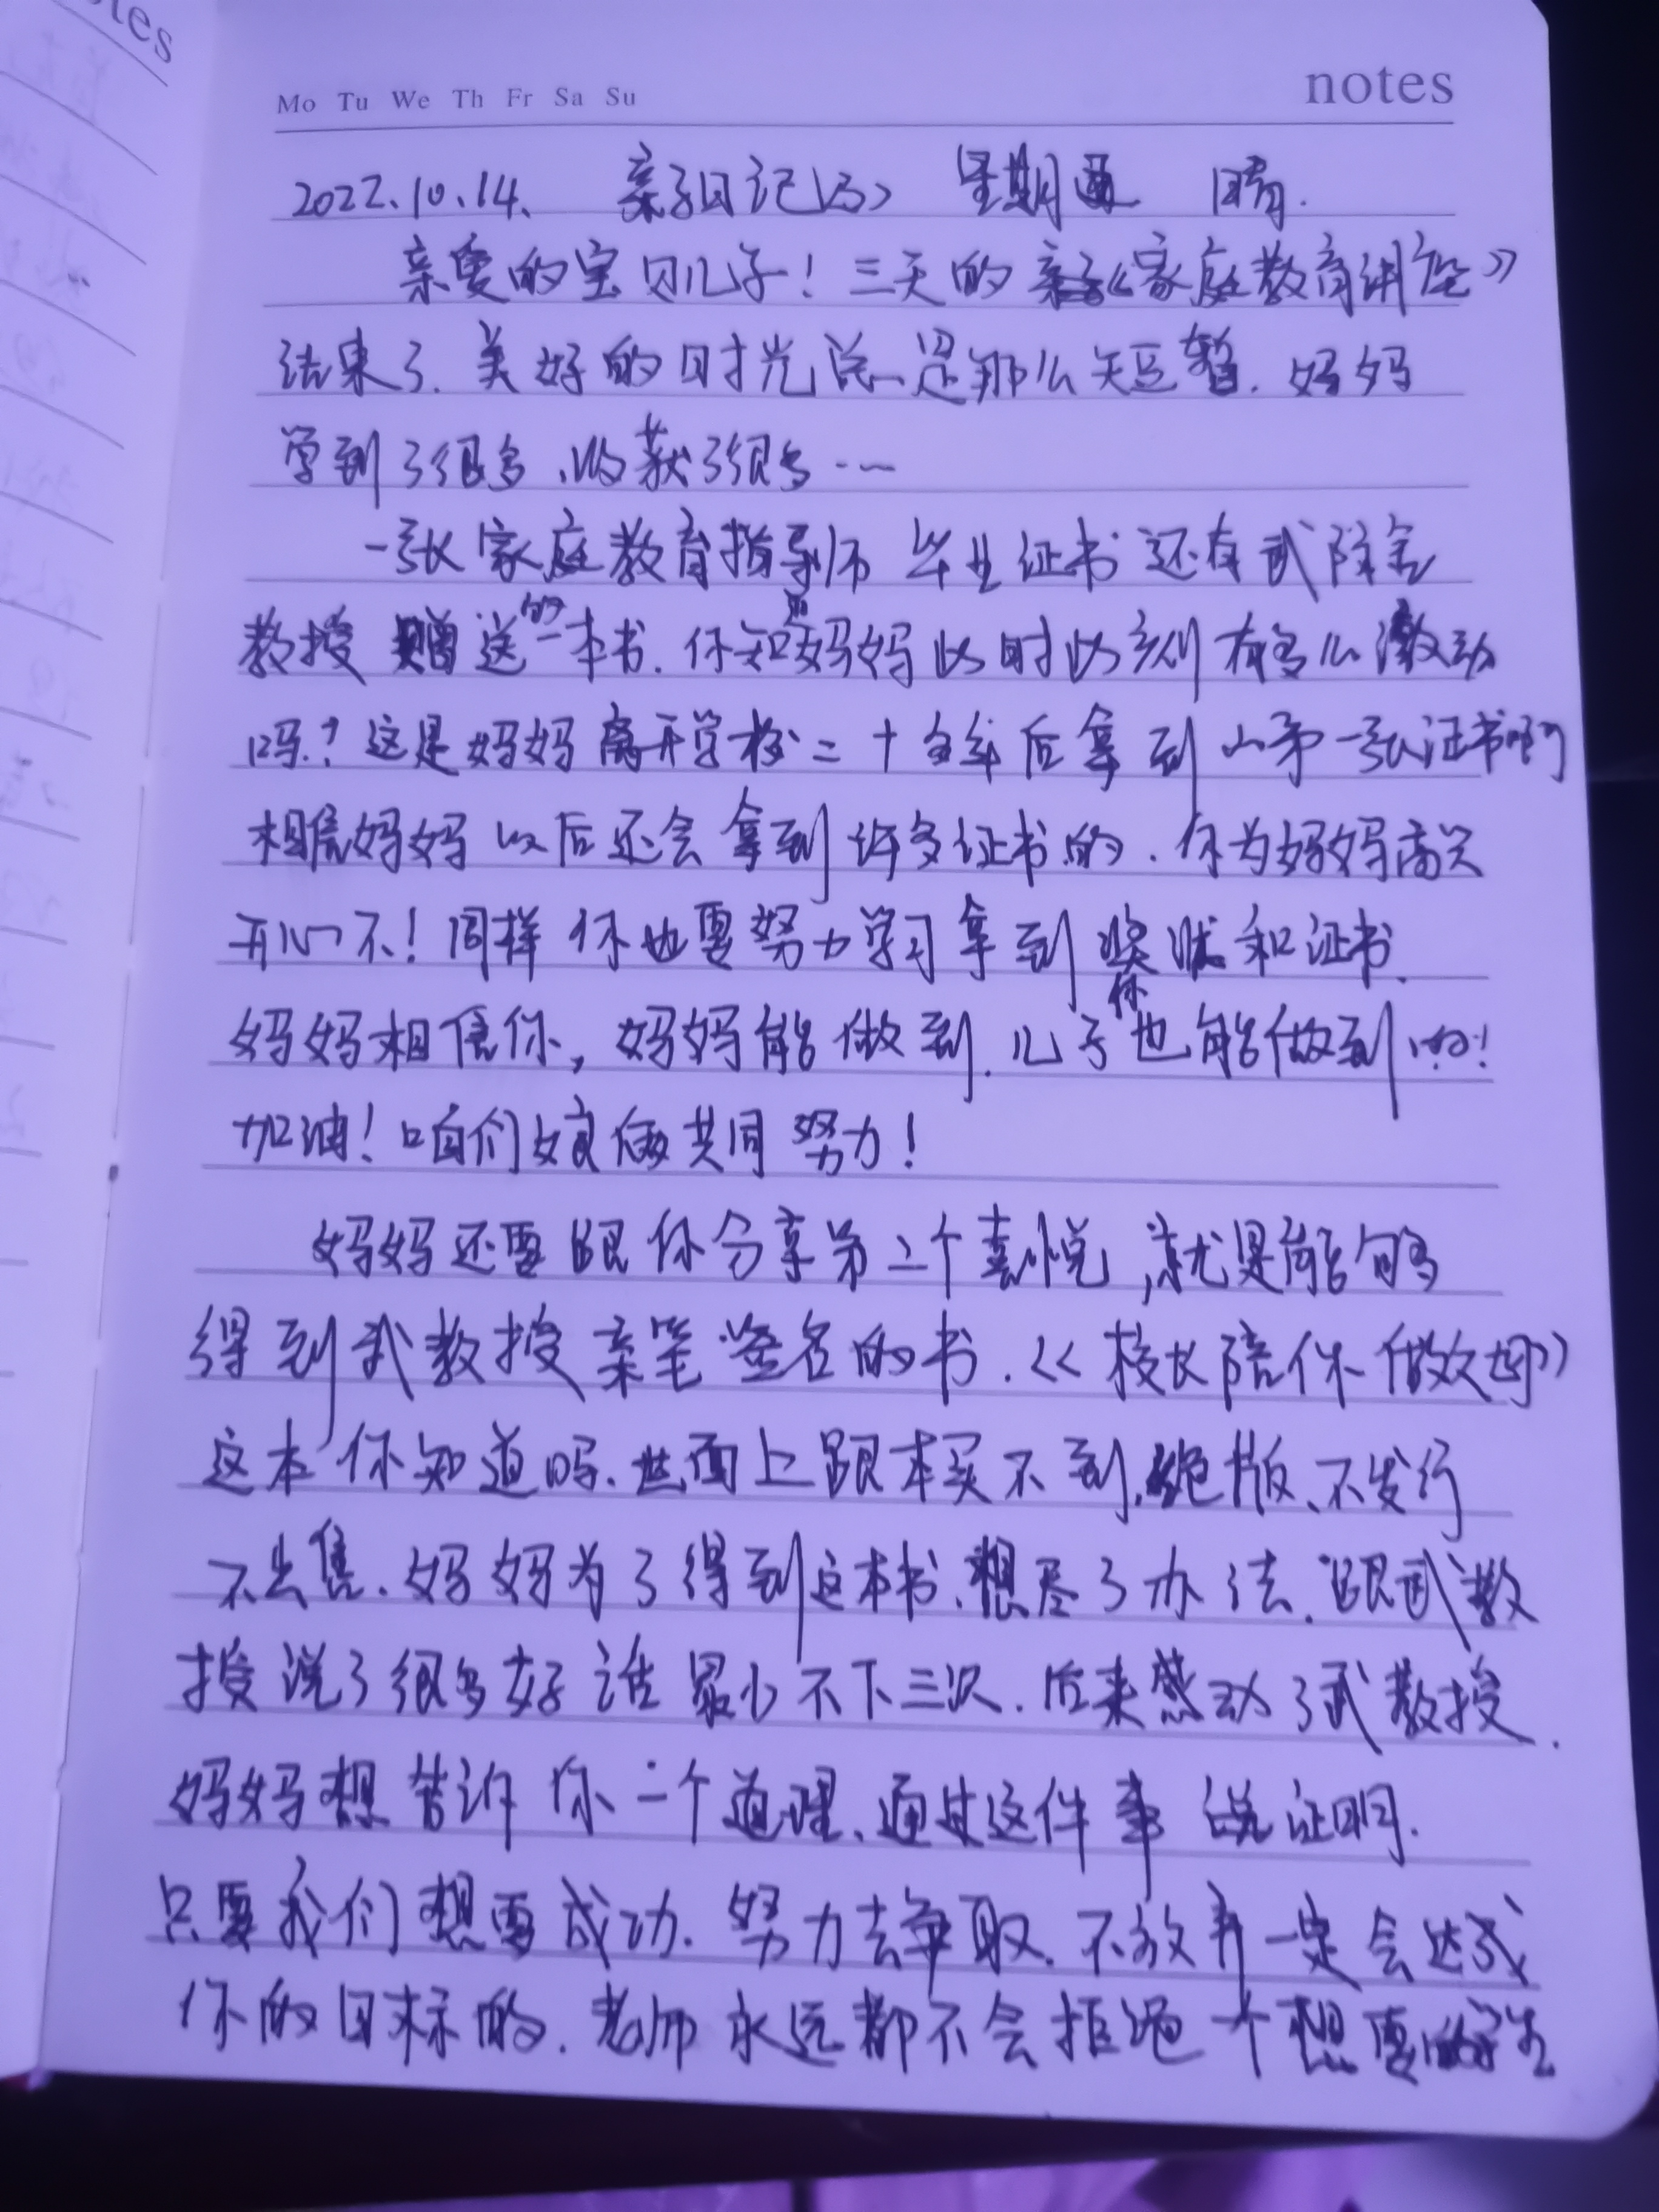 tes
Mo Tu We Th Fr Sa Su notes
2022.10.14、 亲子日记(3) 星期 晴.
亲爱的宝贝儿子！三天的《家庭教育讲座》
结束了.美好的时光总是那么短暂.妈妈
学到了很多、收获了很多……
一张家庭教育指导师毕业证书还有武
教授赠送的一本书.你知道妈妈此时此刻有多么激动
吗？这是妈妈离开学校二十多年后拿到的第一张证书
相信妈妈以后还会拿到许多证书的.你为妈妈高兴
开心不！同样你也要努力学习拿到奖状和证书.
妈妈相信你，妈妈能做到.儿子你也能做到的！
加油！咱们娘俩共同努力！
妈妈还要跟你分享第二个喜悦，就是能够
得到武教授亲笔签名的书.《校长陪你做父母》
这本你知道吗.世面上跟本买不到.绝版、不发行
不出售.妈妈为了得到这本书、想尽了办法.跟武教
授说了很多好话最少不下三次.后来感动了武教授.
妈妈想告诉你一个道理、通过这件事证明.
只要我们想要成功.努力去争取.不放弃一定会达成
你的目标的.老师永远都不会拒绝一个想要的学生